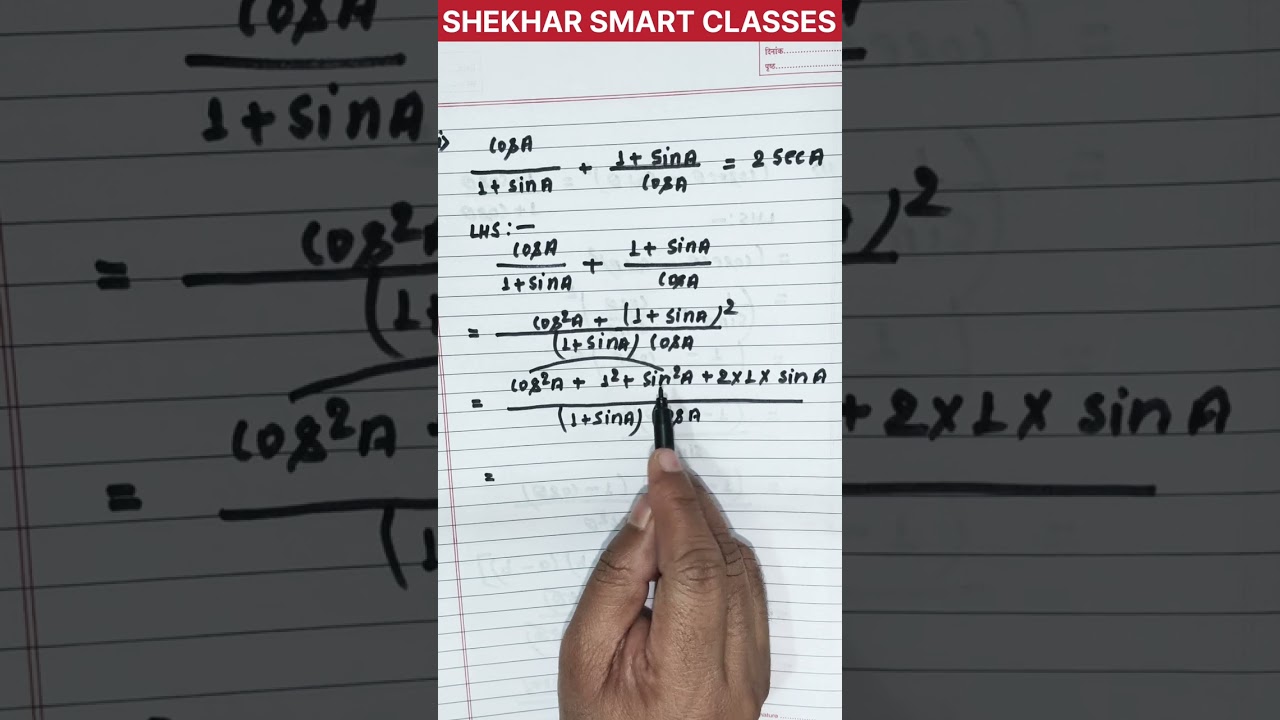 SHEKHAR SMART CLASSES
दिनांक
पृष्ठ
i) cosA/(1+sinA) + (1+sinA)/cosA = 2 secA
LHS:-
cosA/(1+sinA) + (1+sinA)/cosA
= (cos²A + (1+sinA)²)/((1+sinA) cosA)
= (cos²A + 1² + sin²A + 2×1× sinA)/((1+sinA) cosA)
=